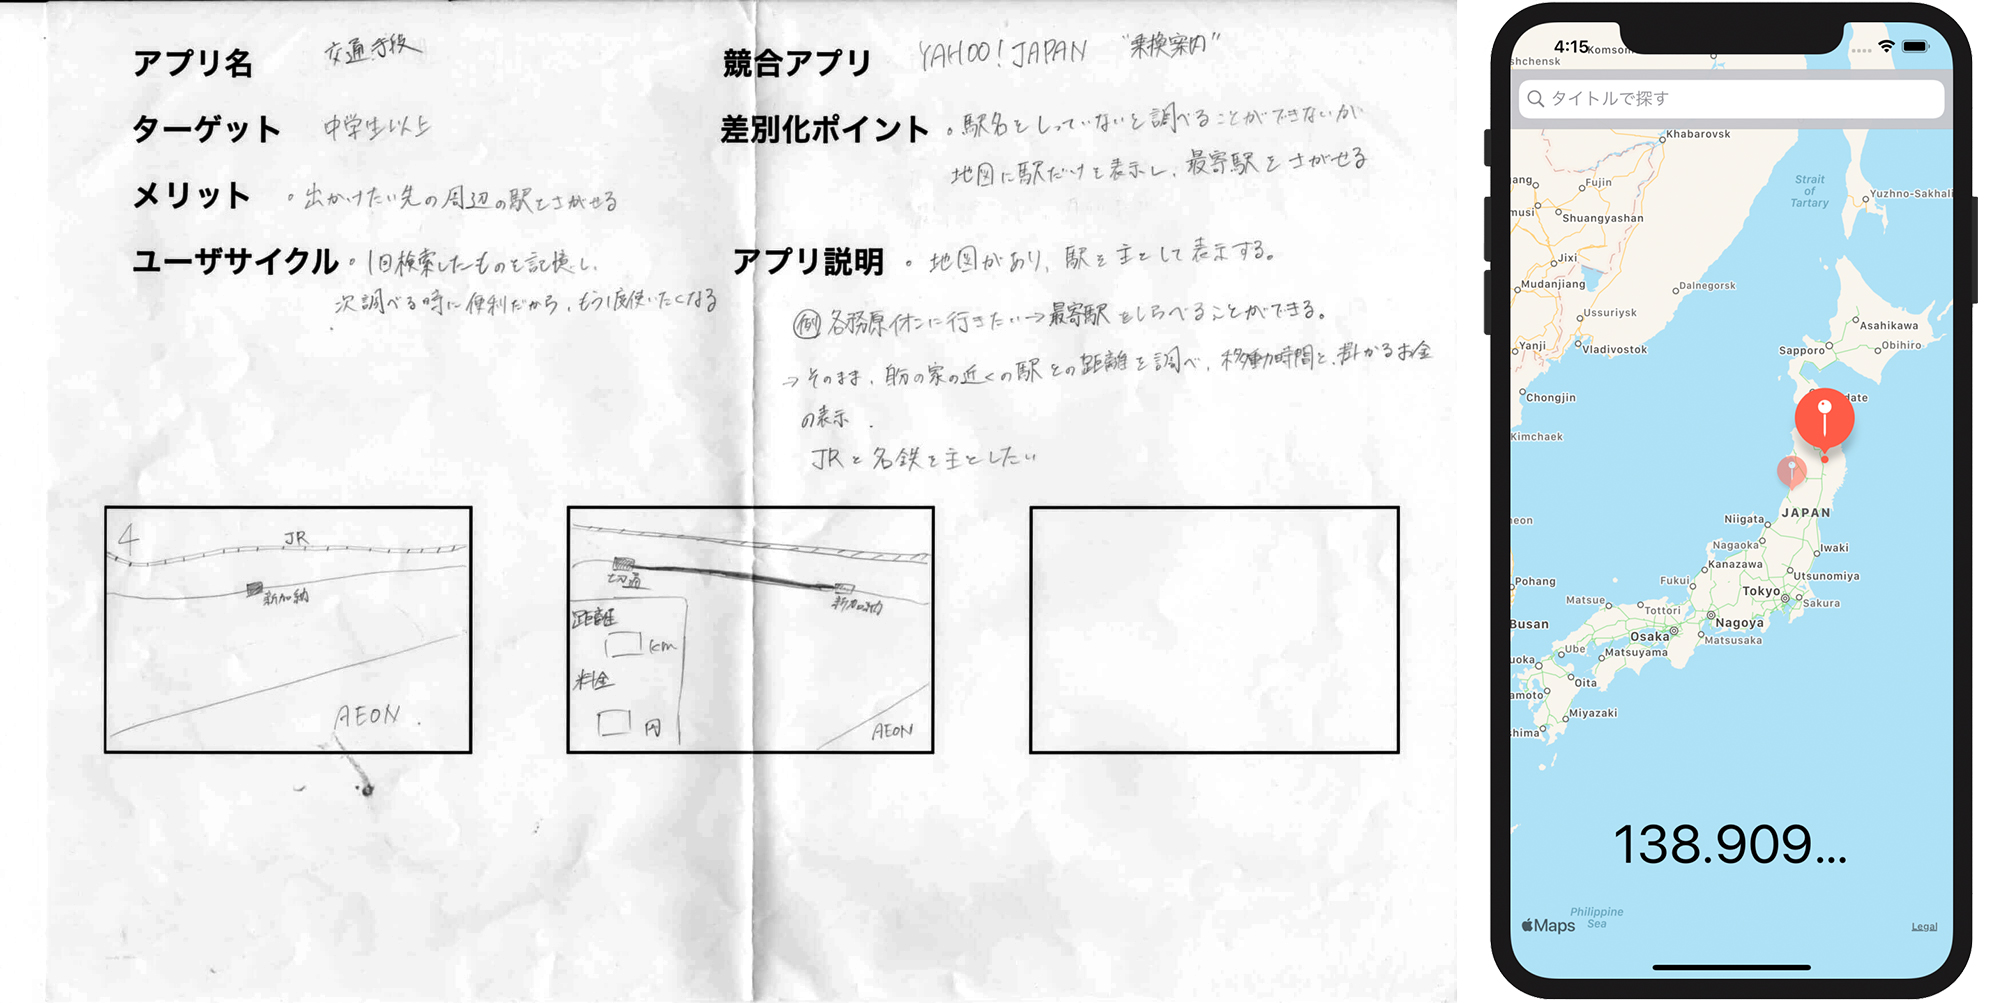 アプリ名 交通手段
ターゲット 中学生以上
メリット ・出かけたい先の周辺の駅をさがせる
ユーザサイクル ・1回検索したものを記憶し、
次調べる時に便利だから、もう1度使いたくなる
競合アプリ YAHOO! JAPAN "乗換案内"
差別化ポイント ・駅名をしっていないと調べることができないが
地図に駅だけを表示し、最寄駅をさがせる
アプリ説明 ・地図があり、駅を主として表示する。
例 各務原イオンに行きたい→最寄駅をしらべることができる。
→そのまま、自分の家の近くの駅との距離を調べ、移動時間と、掛かるお金
の表示.
JRと名鉄を主としたい
4
JR
新加納
AEON.
切通
新加納
距離
km
料金
円
AEON
4:15
Komsom
shchensk
タイトルで探す
Khabarovsk
ang
Fujin
Strait
of
Tartary
Yuzhno-Sakhali
musi
Shuangyashan
Jixi
Mudanjiang
Dalnegorsk
Ussuriysk
Yanji
Vladivostok
Asahikawa
Sapporo
Obihiro
Chongjin
date
Kimchaek
JAPAN
Niigata
eon
Nagaoka
Iwaki
Kanazawa
Pohang
Fukui
Utsunomiya
Tokyo
Matsue
Tottori
Sakura
Busan
Nagoya
Osaka
Matsusaka
uoka
Ube
Matsuyama
amoto
Oita
Miyazaki
shima
138.909...
Maps
Philippine
Sea
Legal